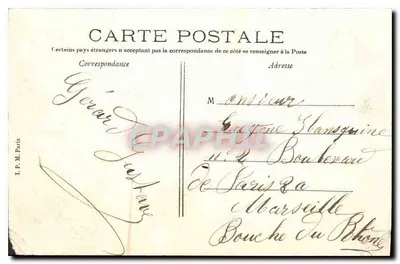 CARTE POSTALE
Certains pays étrangers n acceptant pas la correspondance de ce côté se renseigner à la Poste
Correspondance
Adresse
Gérard
Gustave
Monsieur
Eugène
Boulevard
de Paris 2a
Marseille
Bouche du Rhône
I. P. M. Paris
CARTHAPHILA